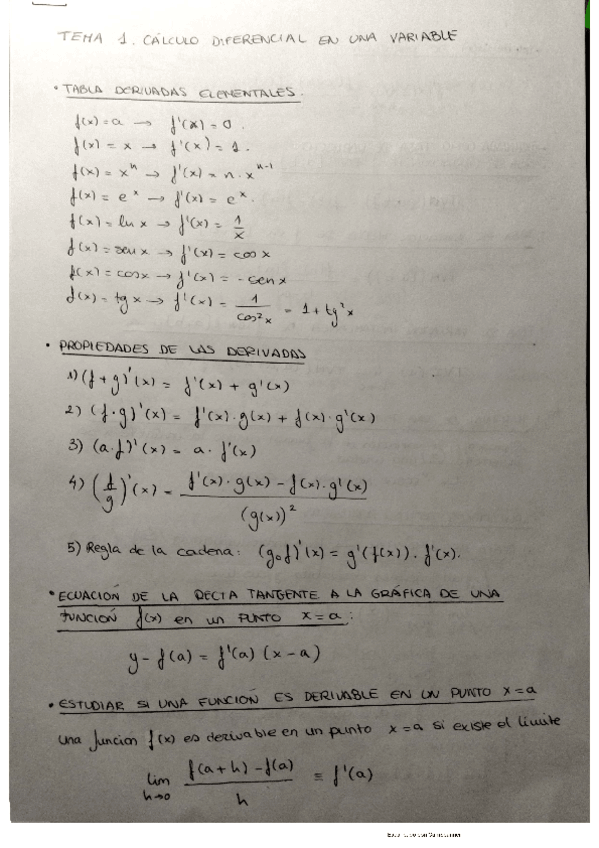 TEMA 1. CÁLCULO DIFERENCIAL EN UNA VARIABLE
• TABLA DERIVADAS ELEMENTALES.
f(x) = a → f'(x) = 0.
f(x) = x → f'(x) = 1.
f(x) = xⁿ → f'(x) = n · xⁿ⁻¹
f(x) = eˣ → f'(x) = eˣ.
f(x) = ln x → f'(x) = 1/x
f(x) = sen x → f'(x) = cos x
f(x) = cos x → f'(x) = - sen x
f(x) = tg x → f'(x) = 1/cos²x = 1 + tg²x
• PROPIEDADES DE LAS DERIVADAS
1) (f + g)'(x) = f'(x) + g'(x)
2) (f · g)'(x) = f'(x) · g(x) + f(x) · g'(x)
3) (a · f)'(x) = a · f'(x)
4) (f/g)'(x) = (f'(x) · g(x) - f(x) · g'(x))/(g(x))²
5) Regla de la cadena: (g∘f)'(x) = g'(f(x)) · f'(x).
• ECUACIÓN DE LA RECTA TANGENTE A LA GRÁFICA DE UNA
FUNCIÓN f(x) en un PUNTO x = a:
y - f(a) = f'(a) (x - a)
• ESTUDIAR SI UNA FUNCIÓN ES DERIVABLE EN UN PUNTO x = a
Una función f(x) es derivable en un punto x = a si existe el límite
lim h→0 (f(a + h) - f(a))/h ≡ f'(a)